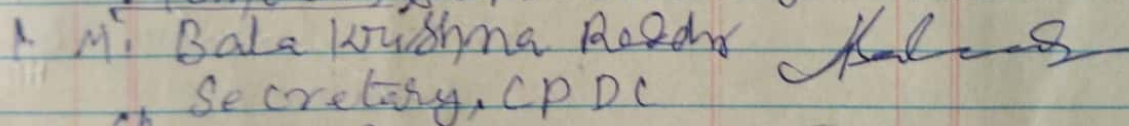 M. Bala Krishna Reddy
Secretary, CPDC